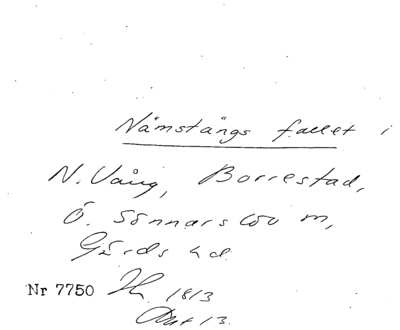 Nämstängs fallet i
N. Vång, Borrestad,
Ö. Sönnarslöv sn,
Gärds hd.
Nr 7750 1813